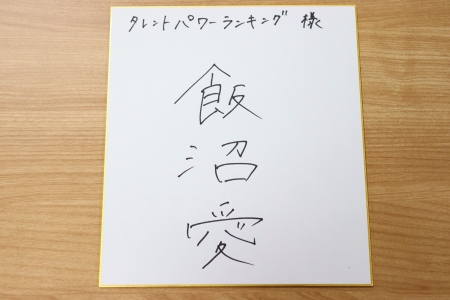 タレントパワーランキング 様
飯
沼
愛